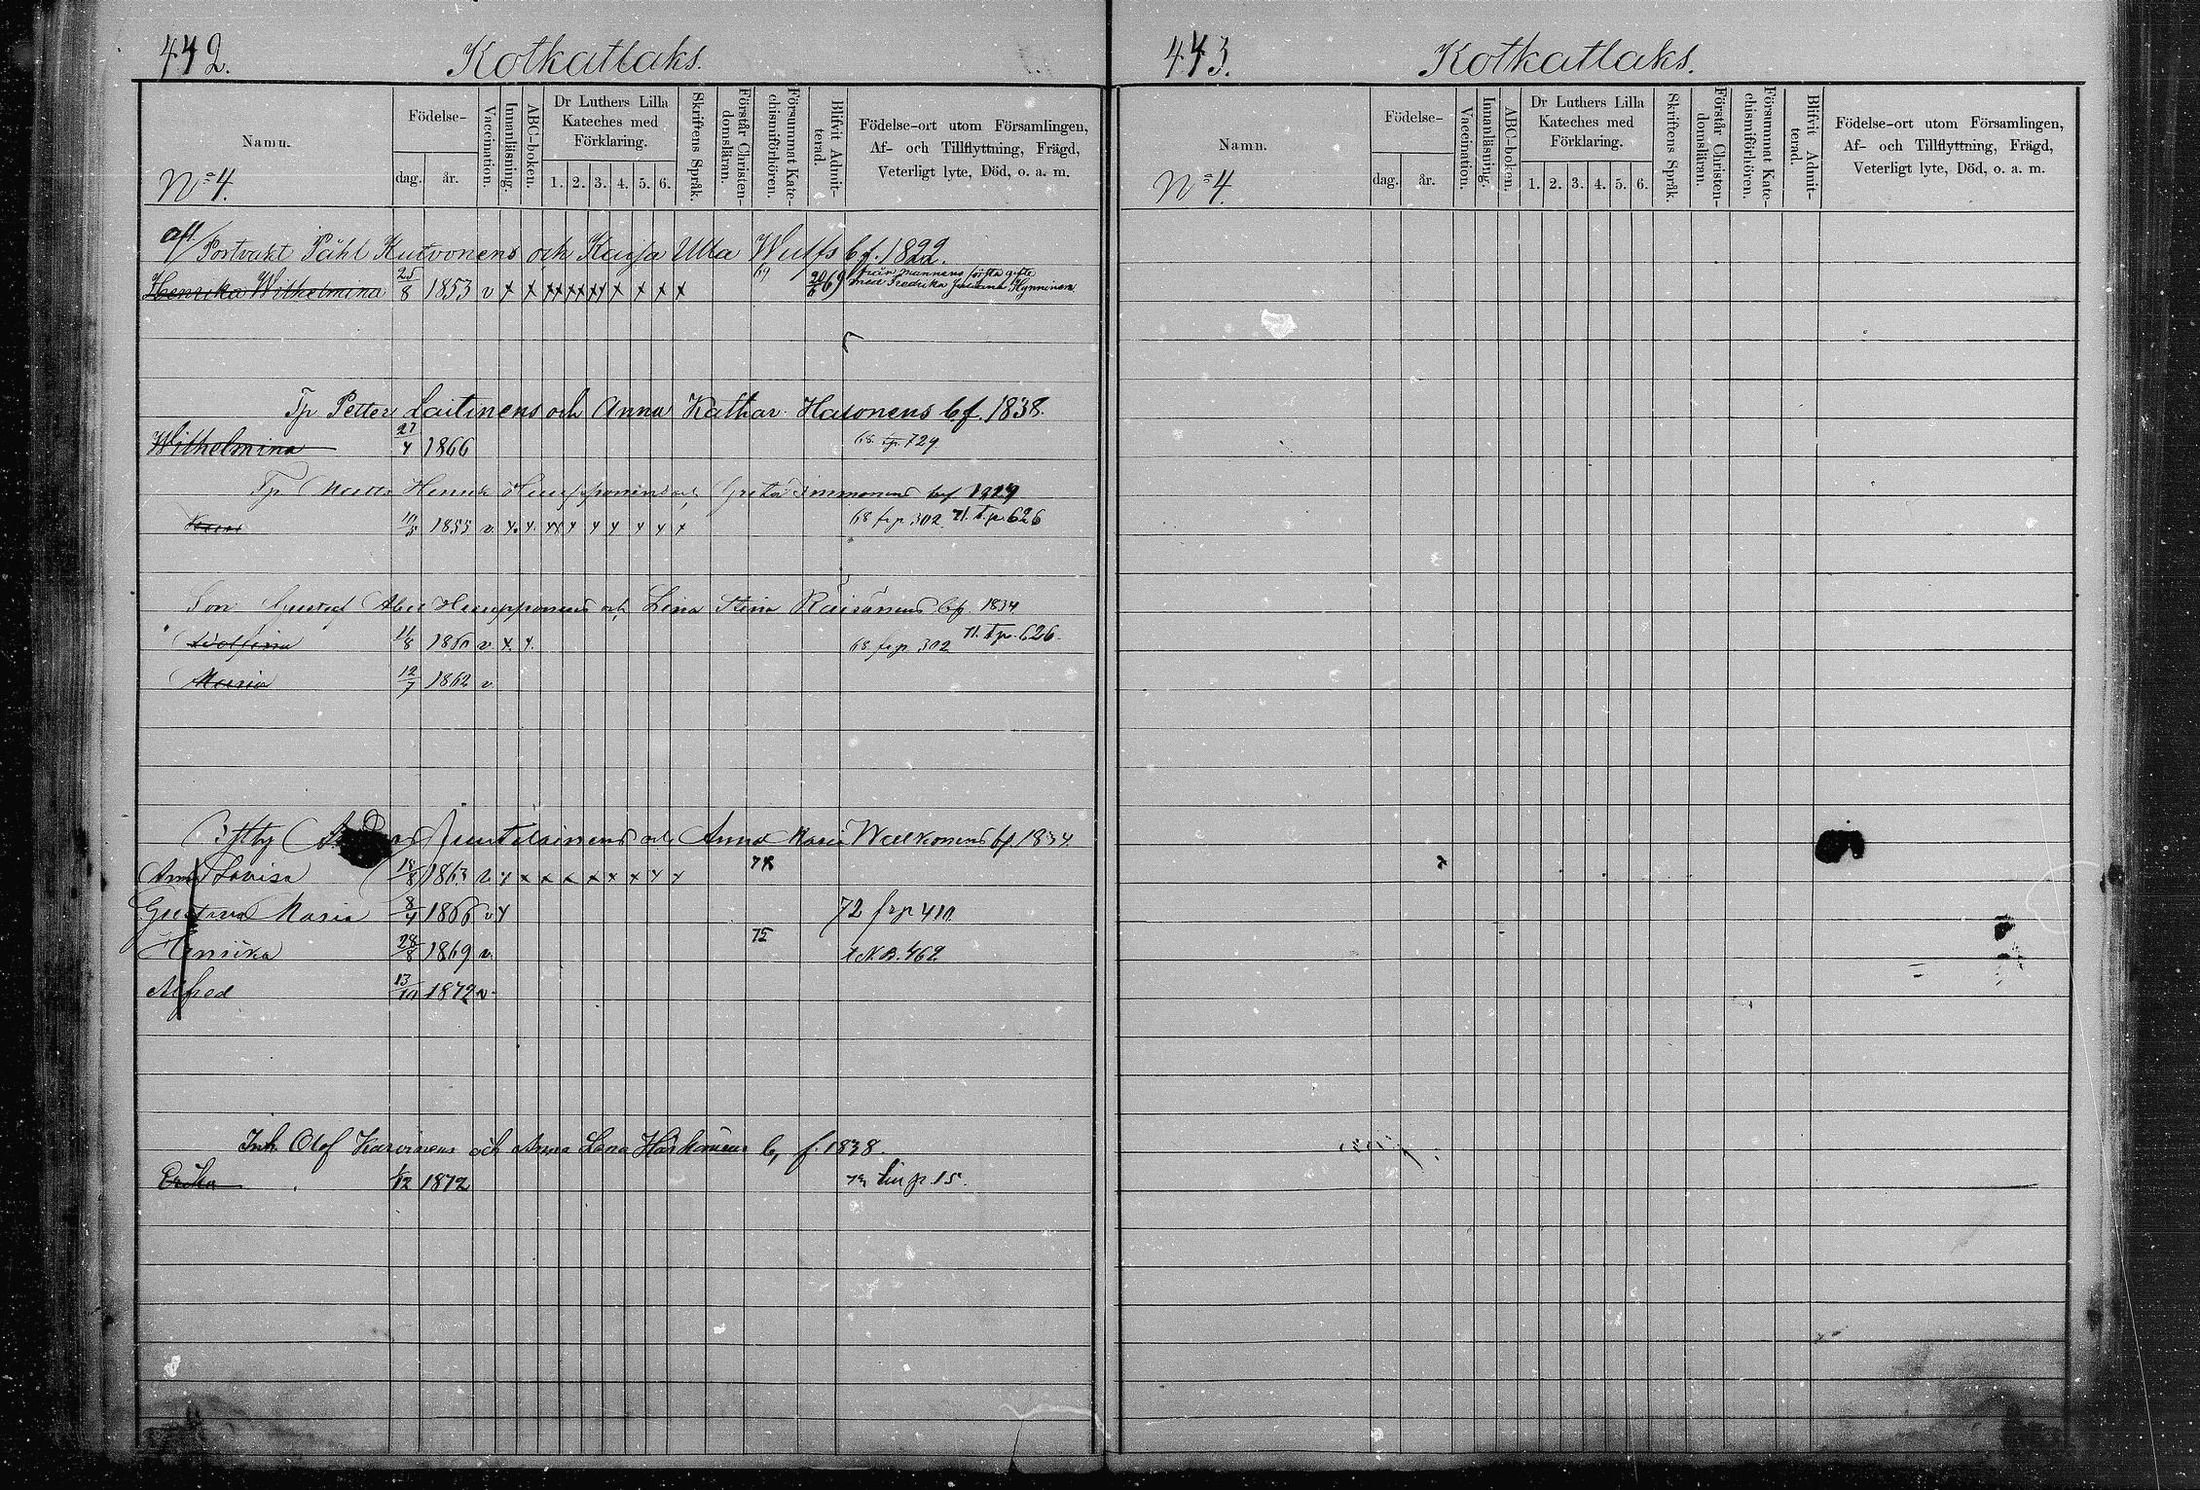 442.
Kotkatlaks.
Namn.
No 4.
Födelse-
dag.
år.
Vaccination.
Innanläsning.
ABC-boken.
Dr Luthers Lilla
Kateches med
Förklaring.
1. 2. 3. 4. 5. 6.
Skriftens Språk.
Förstår Christen-
domsläran.
Försummat Kate-
chismiförhören.
Blifvit Admit-
terad.
Födelse-ort utom Församlingen,
Af- och Tillflyttning, Frägd,
Veterligt lyte, Död, o. a. m.
Påhl Kutvonens och Kaisa Ulla Wulfs b f. 1822.
Henrika Wilhelmina 25/8 1853 v x x xx xx xx x x x x 69 69 mannens första gifte
med Fredrika Hynninen
Tp Petter Laitinens och Anna Kathar. b f. 1838.
Wilhelmina 27/4 1866 68. tp. 729
Tp 
1855 v x x xx x x x x x x 68 frp 302. 71. t.p. 626
Son Gustaf och Lena Stina Räisänens bf. 1834
11/8 1860 v x x 68 frp 302 71. t.p. 626.
Maria 12/7 1862 v
och Anna Maria Walkonens bf. 1834
Anna Lovisa 18/8 1863 v x x x x x x x x x
Gustava Maria 8/4 1866 v x 72 frp 411
Henrika 28/8 1869 v 75 462
Alfred 13/10 1872 v
Inh. Olof Karvinens och Anna Lena b, f. 1838.
Erika 1/12 1872 p. 15.
443.
Kotkatlaks.
Namn.
No 4.
Födelse-
dag.
år.
Vaccination.
Innanläsning.
ABC-boken.
Dr Luthers Lilla
Kateches med
Förklaring.
1. 2. 3. 4. 5. 6.
Skriftens Språk.
Förstår Christen-
domsläran.
Försummat Kate-
chismiförhören.
Blifvit Admit-
terad.
Födelse-ort utom Församlingen,
Af- och Tillflyttning, Frägd,
Veterligt lyte, Död, o. a. m.